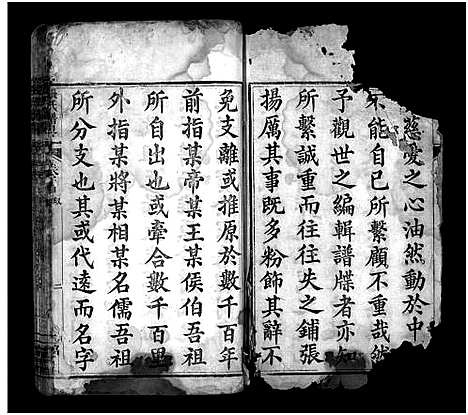 慈愛之心油然動於中
不能自已所繫顧不重哉然
予觀世之編輯譜牒者亦知
所繫誠重而往往失之鋪張
揚厲其事既多粉飾其辭不
免支離或推原於數千百年
前指某帝某王某侯伯吾祖
所自出也或牽合數千百里
外指某將某相某名儒吾祖
所分支也其或代遠而名字